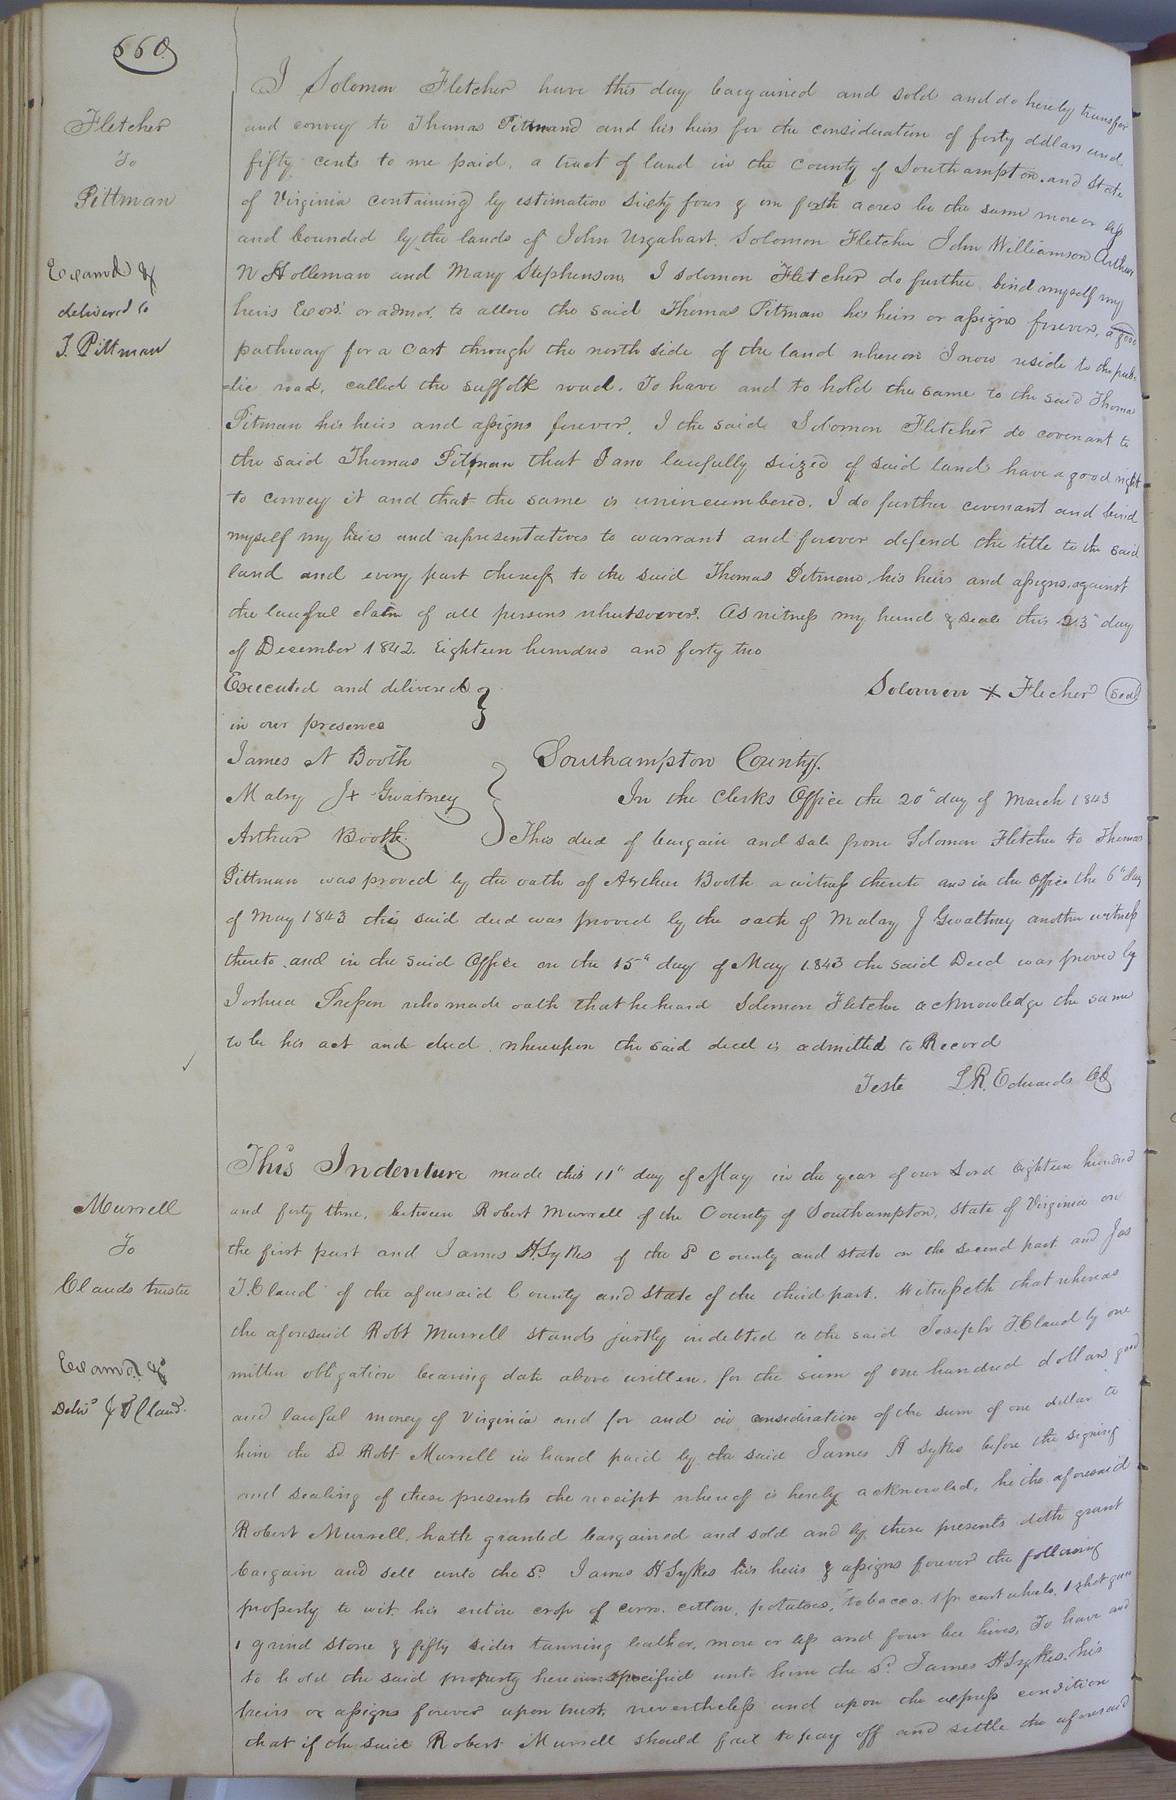 660
Fletcher
To
Pittman
Examd &
delivered to
T. Pittman
I Solomon Fletcher have this day bargained and sold and do hereby transfer
and convey to Thomas Pittman and his heirs for the consideration of forty dollars and
fifty cents to me paid, a tract of land in the County of Southampton and State
of Virginia containing by estimation sixty four & one forth acres be the same more or less
and bounded by the lands of John Urquhart, Solomon Fletcher John Williamson Arthur
W Holleman and Mary Stephenson, I solomon Fletcher do further bind myself my
heirs Exors. or admor. to allow the said Thomas Pitman his heirs or assigns forever, a good
pathway for a cart through the north side of the land whereon I now reside to the pub-
-lic road, called the suffolk road. To have and to hold the same to the said Thomas
Pitman his heirs and assigns forever. I the said Solomon Fletcher do covenant to
the said Thomas Pitman that I am lawfully seized of said land have a good right
to convey it and that the same is unincumbered. I do further covenant and bind
myself my heirs and representatives to warrant and forever defend the title to the said
land and every part thereof to the said Thomas Pitman his heirs and assigns, against
the lawful claim of all persons whatsoever. As witness my hand & seale this 23" day
of December 1842. Eighteen hundred and forty two
Executed and delivered }
Solomon X Flecher Seal
in our presence
James N Booth
Malry J+ Gwatney
Arthur Booth
Southampton County.
In the Clerks Office the 20" day of March 1843
This deed of bargain and sale from Solomon Fletcher to Thomas
Pittman was proved by the oath of Arthur Booth a witness thereto and in the Office the 6" day
of May 1843 this said deed was proved by the oath of Malry J Gwaltney another witness
thereto and in the said Office on the 15" day of May 1843 the said Deed was proved by
Joshua Presson who made oath that he heard Solomon Fletcher acknowledge the same
to be his act and deed whereupon the said deed is admitted to Record
Teste L.R. Edwards CC
Murrell
To
Clauds trustee
Examd. &
Deld J T Claud.
This Indenture made this 11" day of May in the year of our Lord Eighteen hundred
and forty three, between Robert Murrell of the County of Southampton, State of Virginia on
the first part and James H Sykes of the sd County and state on the second part and Jos
T. Claud of the aforesaid County and State of the third part. Witnesseth that whereas
the aforesaid Robt Murrell stands justly indebted to the said Joseph T. Claud by one
written obligation bearing date above written. for the sum of one hundred dollars good
and lawful money of Virginia and for and in consideration of the sum of one dollar to
him the sd Robt Murrell in hand paid by the said James H Sykes before the signing
and sealing of these presents the receipt whereof is hereby acknowled, he the aforesaid
Robert Murrell, hath granted bargained and sold and by these presents doth grant
bargain and sell unto the sd. James H Sykes his heirs & assigns forever the following
property to wit his entire crop of corn. cotton, potatoes, tobacco. 1 pr cart wheels. 1 shot gun
1 grind stone & fifty sides tanning leather, more or less and four bee hives, To have and
to hold the said property herein specified unto him the sd. James H Sykes his
heirs or assigns forever upon trust, nevertheless and upon the express condition
that if the said Robert Murrell should fail to pay off and settle the aforesaid